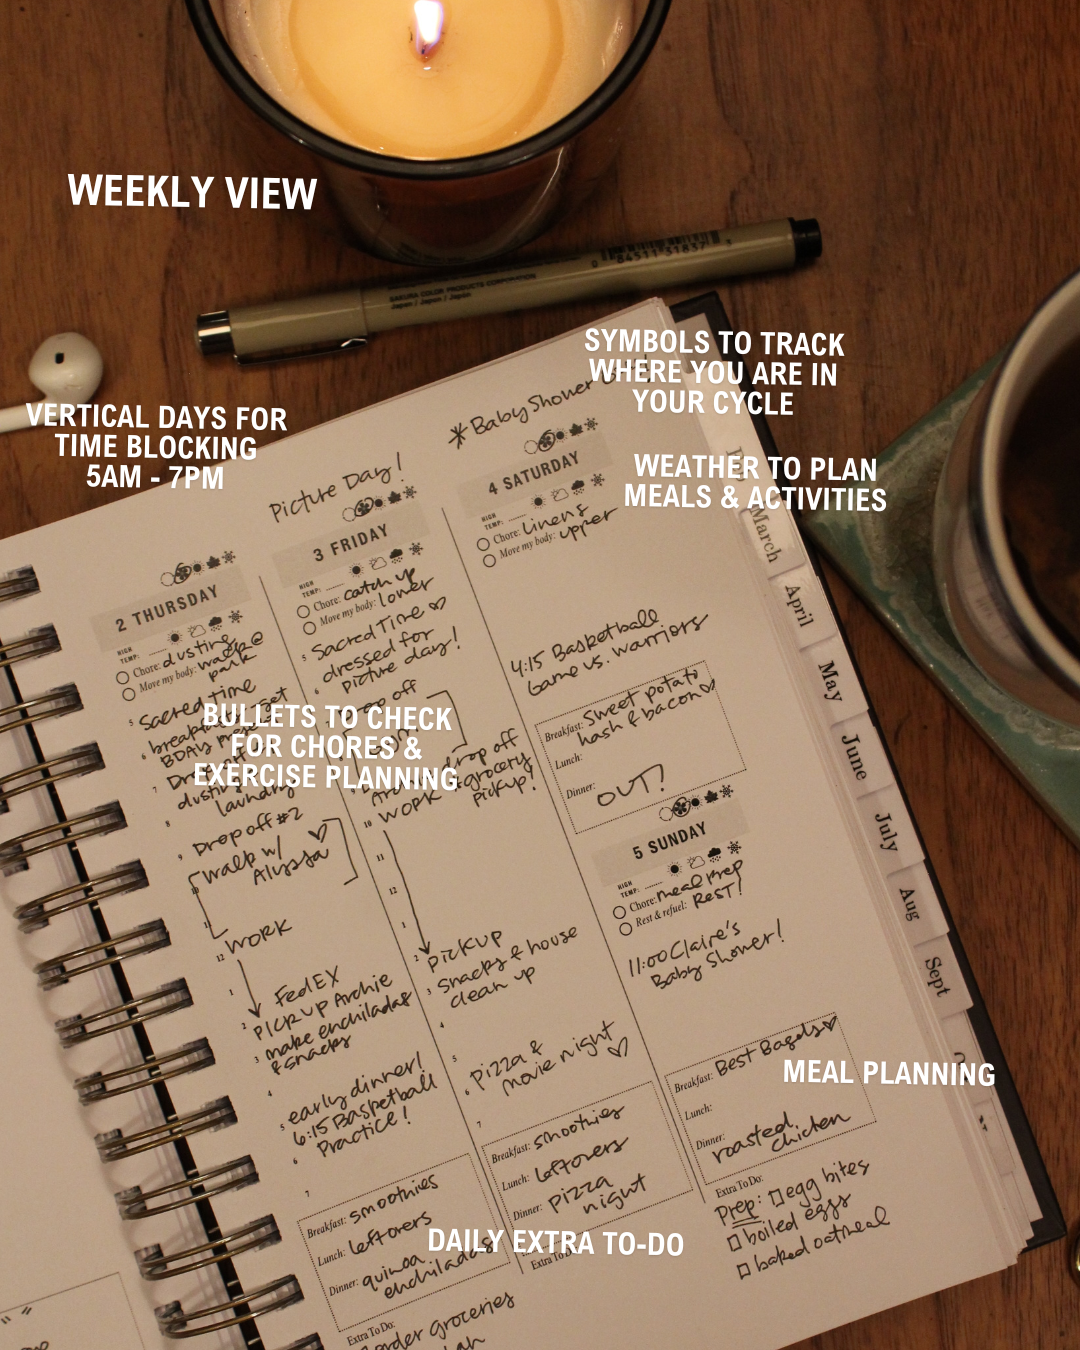 WEEKLY VIEW
SAKURA COLOR PRODUCTS CORPORATION
Japan / Japon / Japan
0 84511 31837 3
SYMBOLS TO TRACK
WHERE YOU ARE IN
YOUR CYCLE
VERTICAL DAYS FOR
TIME BLOCKING
5AM - 7PM
WEATHER TO PLAN
MEALS & ACTIVITIES
BULLETS TO CHECK
FOR CHORES &
EXERCISE PLANNING
MEAL PLANNING
DAILY EXTRA TO-DO
2 THURSDAY
HIGH
TEMP:
Chore: dusting
Move my body: walk @
park
5 Sacred Time
6
7 Drop off
dusting
laundry
8
9 Drop off #2
walk w/
Alyssa
10
11
12 WORK
1 FedEX
2 PICKUP Archie
3 make enchiladas
& snacks
4
5 early dinner!
6:15 Basketball
6 Practice!
7
Breakfast: smoothies
Lunch: leftovers
Dinner: quinoa
enchiladas
Extra To Do:
order groceries
Picture Day!
3 FRIDAY
HIGH
TEMP:
Chore: catch up
Move my body: lower
5 Sacred Time
6 dressed for
picture day!
drop off
9 drop off
10 WORK & grocery
pickup!
11
12
1
2 PICKUP
3 snacks & house
clean up
4
5
6 Pizza &
movie night
7
Breakfast: smoothies
Lunch: leftovers
Dinner: pizza
night
Extra To Do:
* Baby Shower
4 SATURDAY
HIGH
TEMP:
Chore: linens
Move my body: upper
4:15 Basketball
Game vs. Warriors
Breakfast: sweet potato
hash & bacon
Lunch:
Dinner: OUT!
5 SUNDAY
HIGH
TEMP:
Chore: meal prep
Rest & refuel: REST!
11:00 Claire's
Baby Shower!
Breakfast: Best Bagels
Lunch:
Dinner: roasted
chicken
Extra To Do:
Prep: egg bites
boiled eggs
baked oatmeal
March
April
May
June
July
Aug
Sept